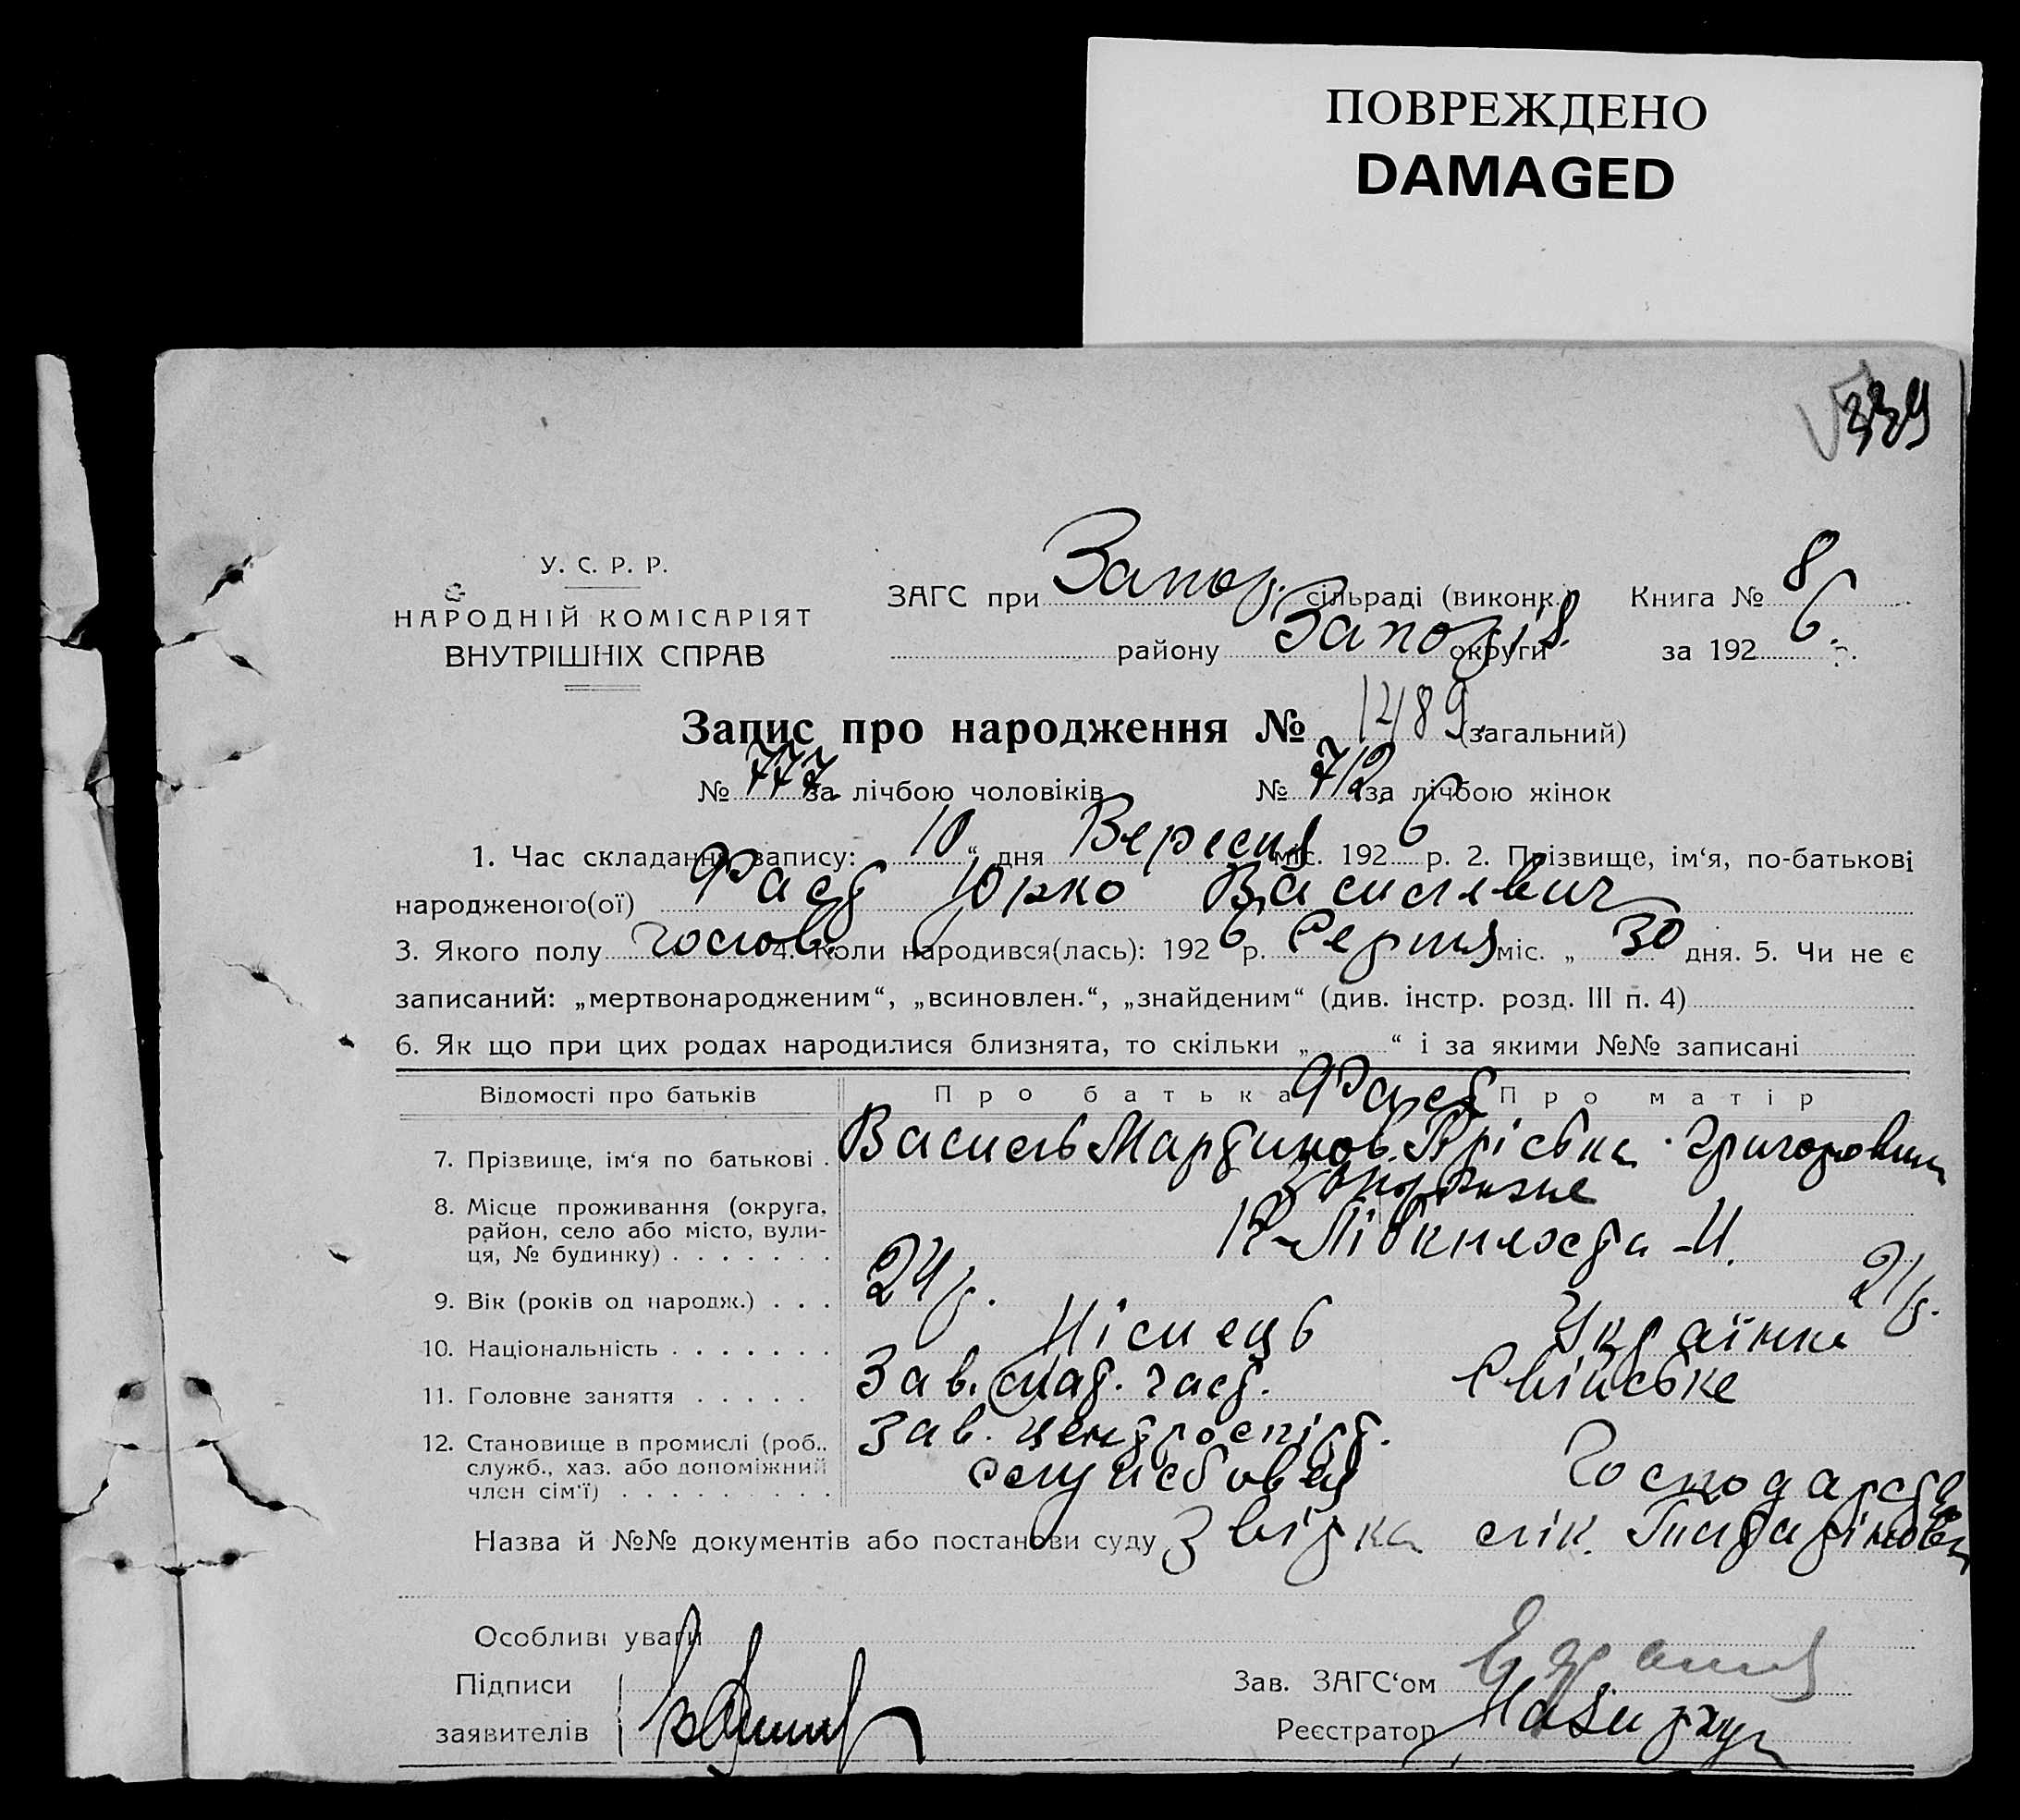 ПОВРЕЖДЕНО
DAMAGED
339
У. С. Р. Р.
НАРОДНІЙ КОМІСАРІЯТ
ВНУТРІШНІХ СПРАВ
ЗАГС при Запор. сільраді (виконк.) Книга № 8
району Запоріз. округи за 1926 р.
Запис про народження № 1489 (загальний)
№ 777 за лічбою чоловіків № 712 за лічбою жінок
1. Час складання запису: 10 “ дня Вересня міс. 1926 р. 2. Прізвище, ім‘я, по-батькові
народженого(ої) Фаст Юрко Васильевич
3. Якого полу чолов. 4. Коли народився(лась): 1926 р. Серпня міс. „ 30 дня. 5. Чи не є
записаний: „мертвонародженим“, „всиновлен.“, „знайденим“ (див. інстр. розд. III п. 4)
6. Як що при цих родах народилися близнята, то скільки „ “ і за якими №№ записані
Відомості про батьків Про батька Фаст Про матір
7. Прізвище, ім‘я по батькові . Василь Мартинов. Фріська Григоровна
8. Місце проживання (округа, Запоріжже
район, село або місто, вули- К-Лібкнехта
ця, № будинку)
9. Вік (років од народж.) . . . 24 р. 21 р.
10. Національність Німець Українка
11. Головне заняття Зав. мат. част. Свійське
12. Становище в промислі (роб., Зав. центроспірт.
служб., хаз. або допоміжний службовец Господарство
член сім‘ї)
Назва й №№ документів або постанови суду Звірка лік.
Особливі уваги
Підписи
заявителів
Зав. ЗАГС‘ом
Реєстратор